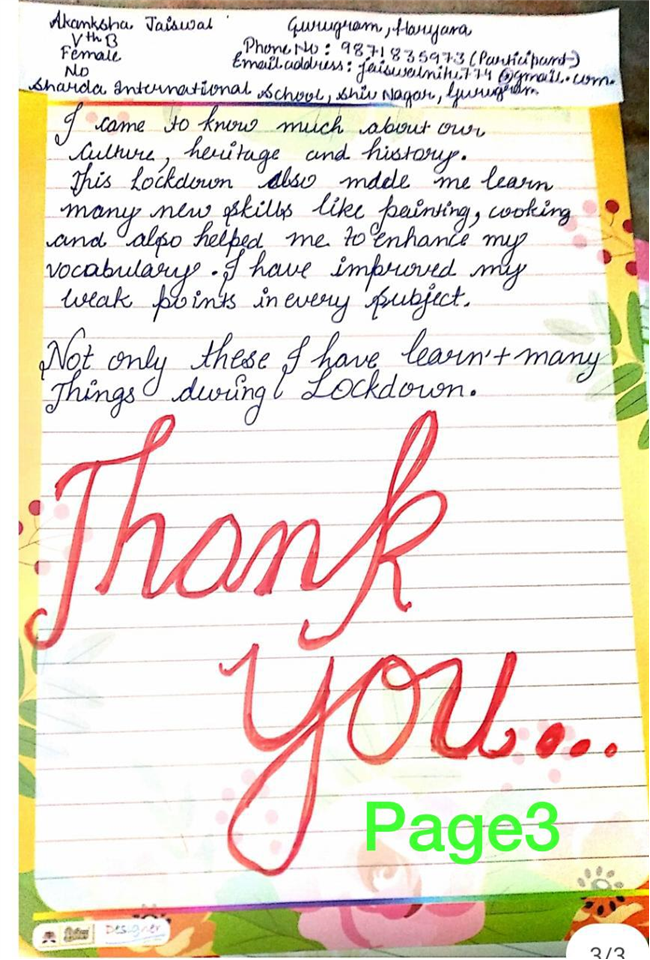 Akanksha Jaiswal
Gurugram, Haryana
Vth B
Phone No : 9871835973 (Participant)
Female
Email address : jaiswalniti774@gmail.com.
No
Sharda International School, Shiv Nagar, Gurugram
I came to know much about our
culture, heritage and history.
This Lockdown also made me learn
many new skills like painting, cooking
and also helped me to enhance my
vocabulary. I have improved my
weak points in every subject.
Not only these I have learn't many
Things during Lockdown.
Thank
you...
Page3
DESIGNER
3/3